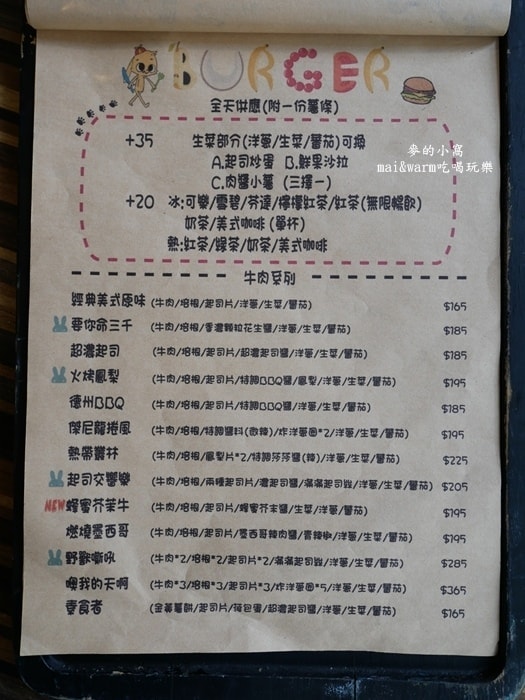 BURGER
全天供應(附一份薯條)
+35 生菜部分(洋蔥/生菜/蕃茄)可換
A.起司炒蛋 B.鮮果沙拉
C.肉醬小薯 (三擇一)
麥的小窩
mai&warm吃喝玩樂
+20 冰:可樂/雪碧/芬達/檸檬紅茶/紅茶(無限暢飲)
奶茶/美式咖啡(單杯)
熱:紅茶/綠茶/奶茶/美式咖啡
牛肉系列
經典美式原味 (牛肉/培根/起司片/洋蔥/生菜/蕃茄) $165
要你命三千 (牛肉/培根/香濃顆粒花生醬/洋蔥/生菜/蕃茄) $185
超濃起司 (牛肉/培根/起司片/超濃起司醬/洋蔥/生菜/蕃茄) $185
火烤鳳梨 (牛肉/培根/起司片/特調BBQ醬/鳳梨/洋蔥/生菜/蕃茄) $195
德州BBQ (牛肉/培根/起司片/特調BBQ醬/洋蔥/生菜/蕃茄) $185
傑尼龍捲風 (牛肉/培根/特調醬料(微辣)/炸洋蔥圈*2/洋蔥/生菜/蕃茄) $195
熱帶叢林 (牛肉/培根/鳳梨片*2/特調莎莎醬(辣)/洋蔥/生菜/蕃茄) $225
起司交響樂 (牛肉/培根/兩種起司片/濃起司醬/滿滿起司絲/洋蔥/生菜/蕃茄) $205
NEW 蜂蜜芥茉牛 (牛肉/培根/起司片/蜂蜜芥末醬/生菜/洋蔥/蕃茄) $195
燃燒墨西哥 (牛肉/培根/起司片/墨西哥辣肉醬/青辣椒/洋蔥/生菜/蕃茄) $195
野獸嘶吼 (牛肉*2/培根*2/起司片*2/滿滿起司絲/洋蔥/生菜/蕃茄) $285
噢我的天啊 (牛肉*3/培根*3/起司片*3/炸洋蔥圈*5/洋蔥/生菜/蕃茄) $365
素食者 (金黃薯餅/起司片/荷包蛋/超濃起司醬/洋蔥/生菜/蕃茄) $165